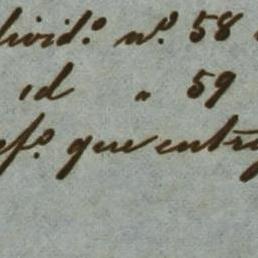 divid.º n.º 58
id " 59
ef.º que entre